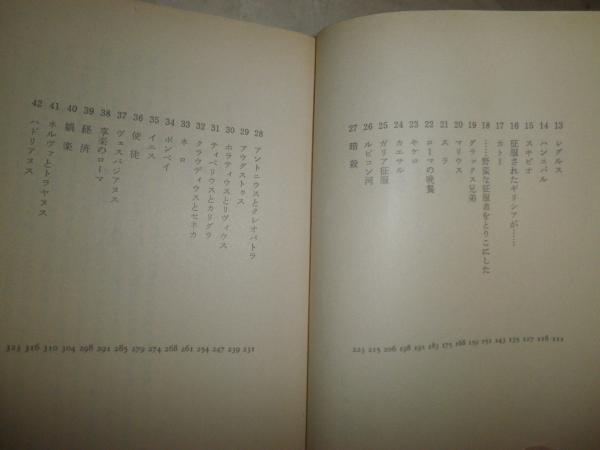 13 レグルス 111
14 ハンニバル 118
15 スキピオ 127
16 征服されたギリシアが…… 135
17 カトー 143
18 ……野蛮な征服者をとりこにした 151
19 グラックス兄弟 159
20 マリウス 168
21 スラ 175
22 ローマの晩餐 183
23 キケロ 191
24 カエサル 198
25 ガリア征服 206
26 ルビコン河 215
27 暗殺 223
28 アントニウスとクレオパトラ 231
29 アウグストゥス 239
30 ホラティウスとリヴィウス 247
31 ティベリウスとカリグラ 254
32 クラウディウスとセネカ 261
33 ネロ 268
34 ポンペイ 274
35 イエス 279
36 使徒 285
37 ヴェスパジアヌス 291
38 享楽のローマ 298
39 経済 304
40 娯楽 310
41 ネルヴァとトラヤヌス 316
42 ハドリアヌス 323